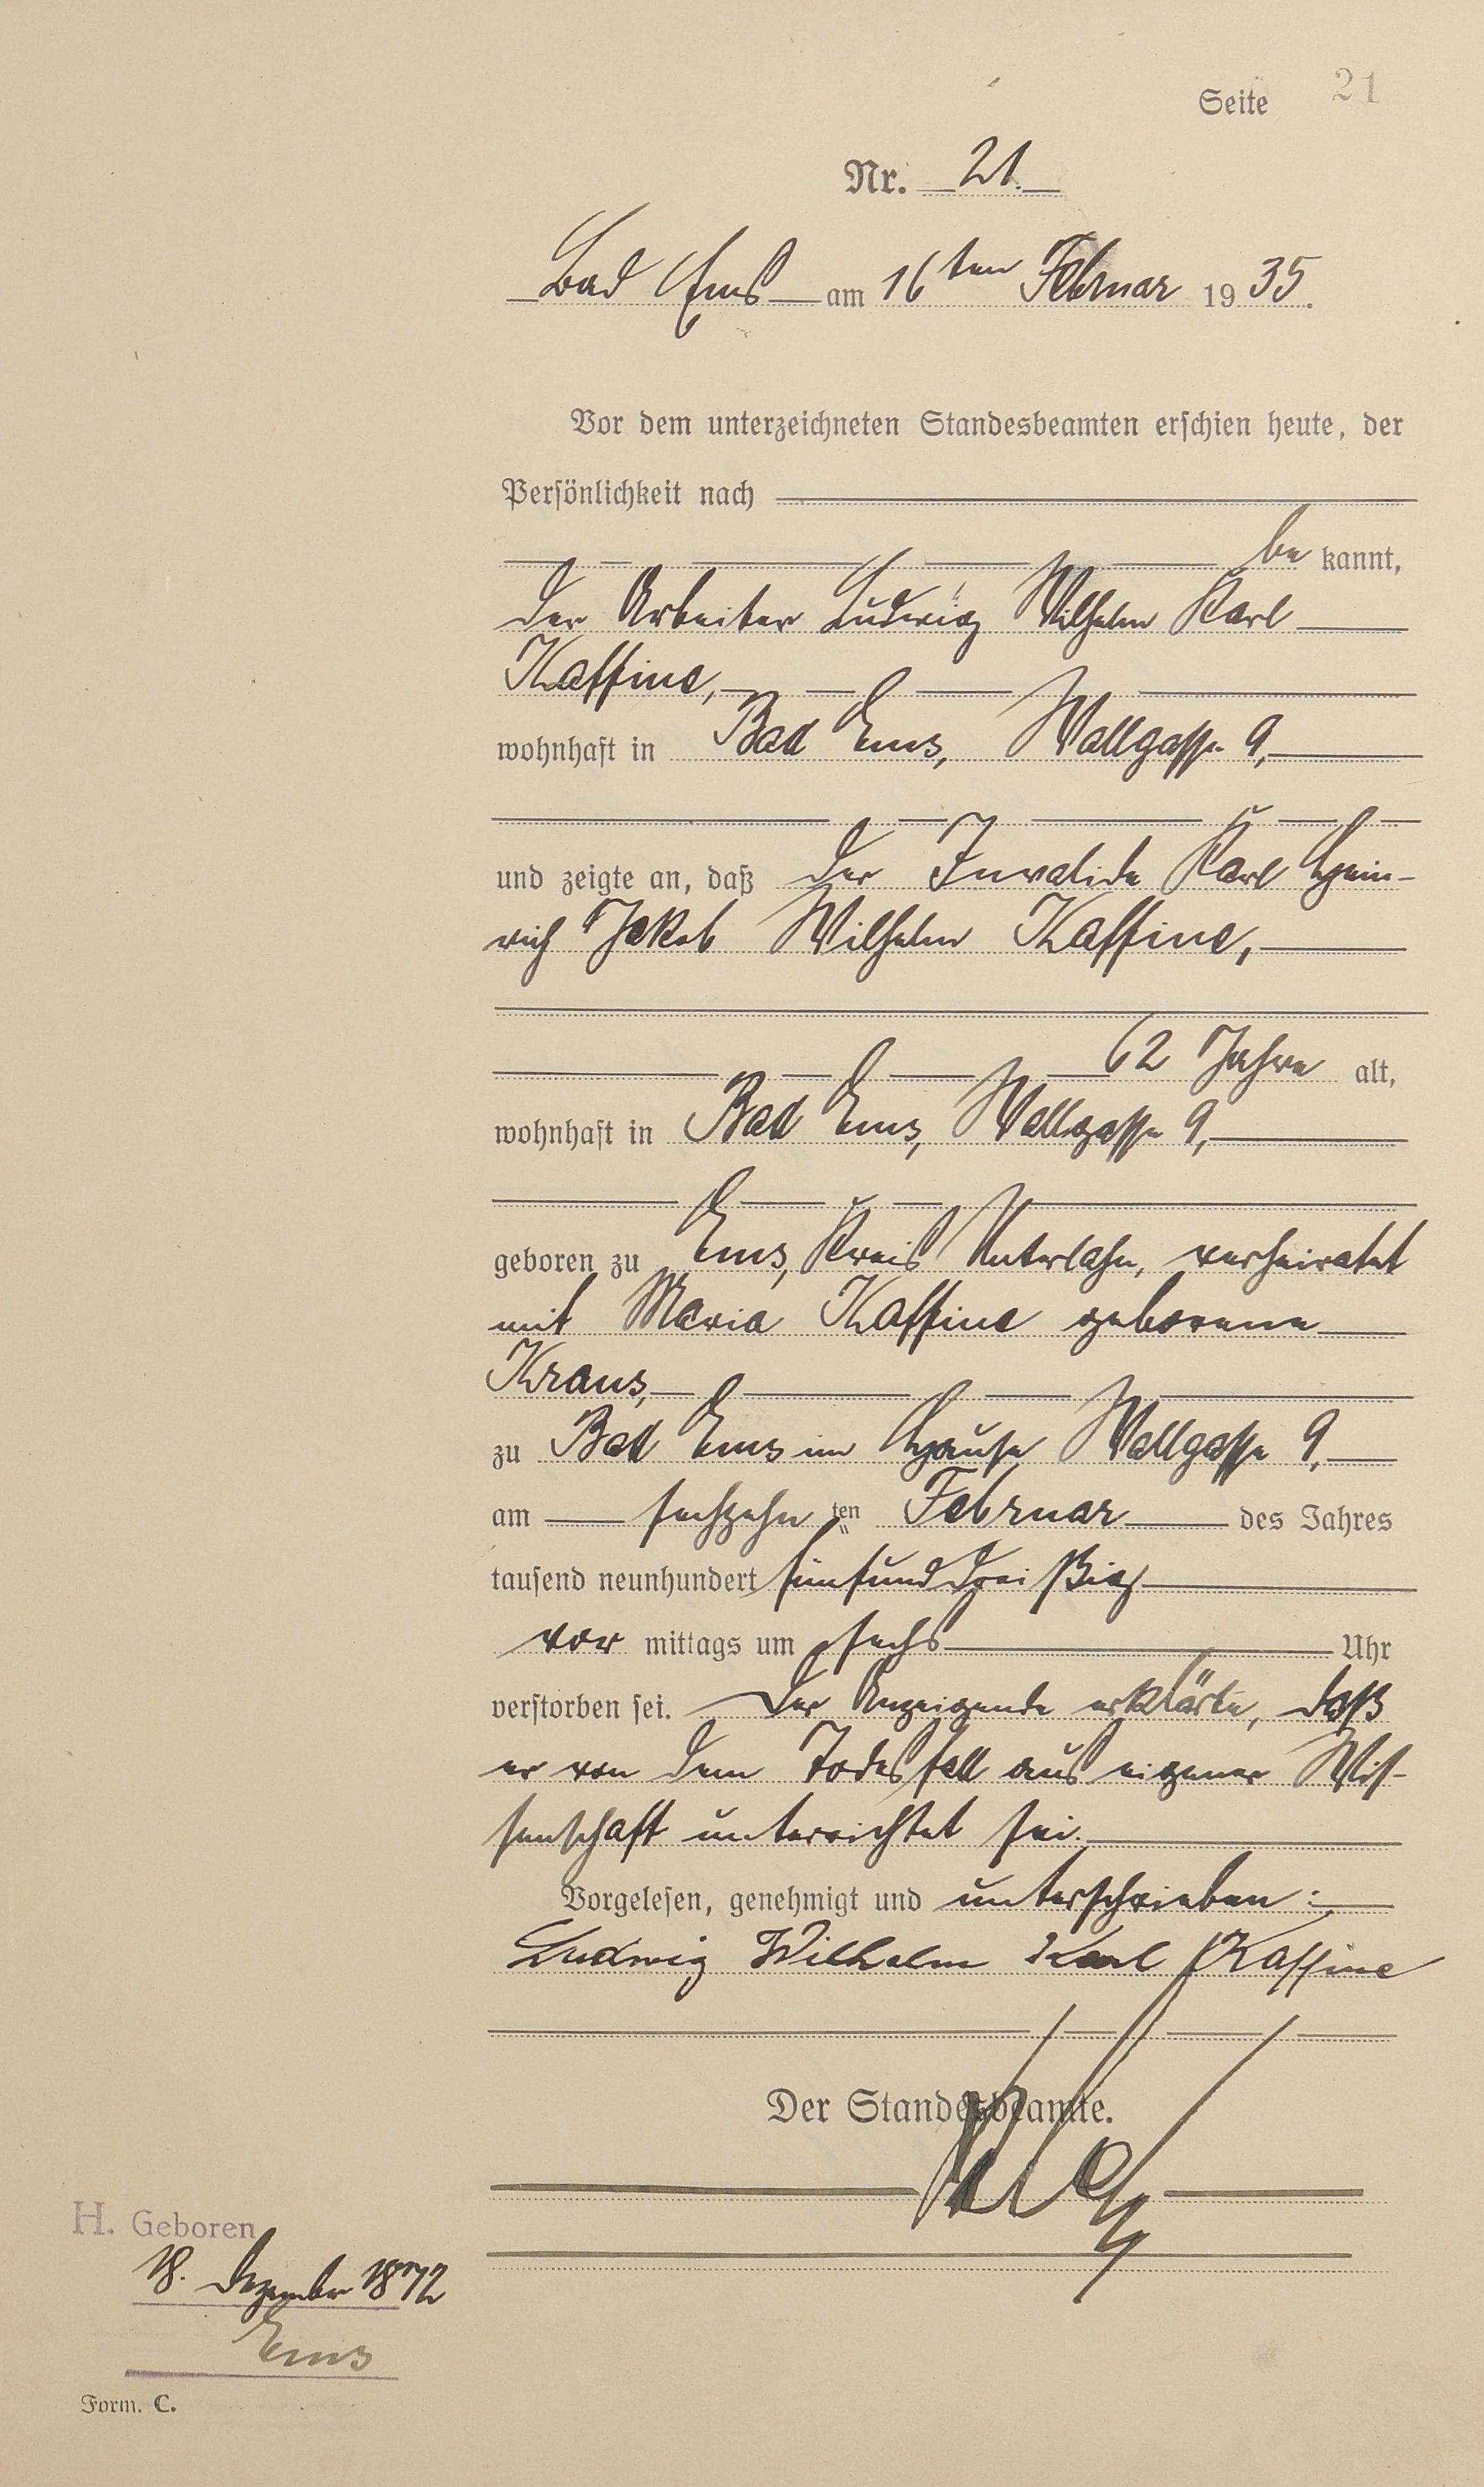 Seite 21
Nr. 21.
Bad Ems am 16ten Februar 1935.
Vor dem unterzeichneten Standesbeamten erschien heute, der
Persönlichkeit nach
be kannt,
der Arbeiter Ludwig Wilhelm Karl
Kaffine,
wohnhaft in Bad Ems, Wallgasse 9,
und zeigte an, daß der Invalide Karl Hein-
rich Jakob Wilhelm Kaffine,
62 Jahre alt,
wohnhaft in Bad Ems, Wallgasse 9,
geboren zu Ems, Kreis Unterlahn, verheiratet
mit Maria Kaffine geborene
Kraus,
zu Bad Ems im Hause Wallgasse 9,
am sechzehn ten Februar des Jahres
tausend neunhundert fünfunddreißig
vor mittags um sechs Uhr
verstorben sei. Der Anzeigende erklärte, daß
er von dem Todesfall aus eigener Wis-
senschaft unterrichtet sei.
Vorgelesen, genehmigt und unterschrieben:
Ludwig Wilhelm Karl Kaffine
Der Standesbeamte.
H. Geboren
18. Dezember 1872
Ems
Form. C.